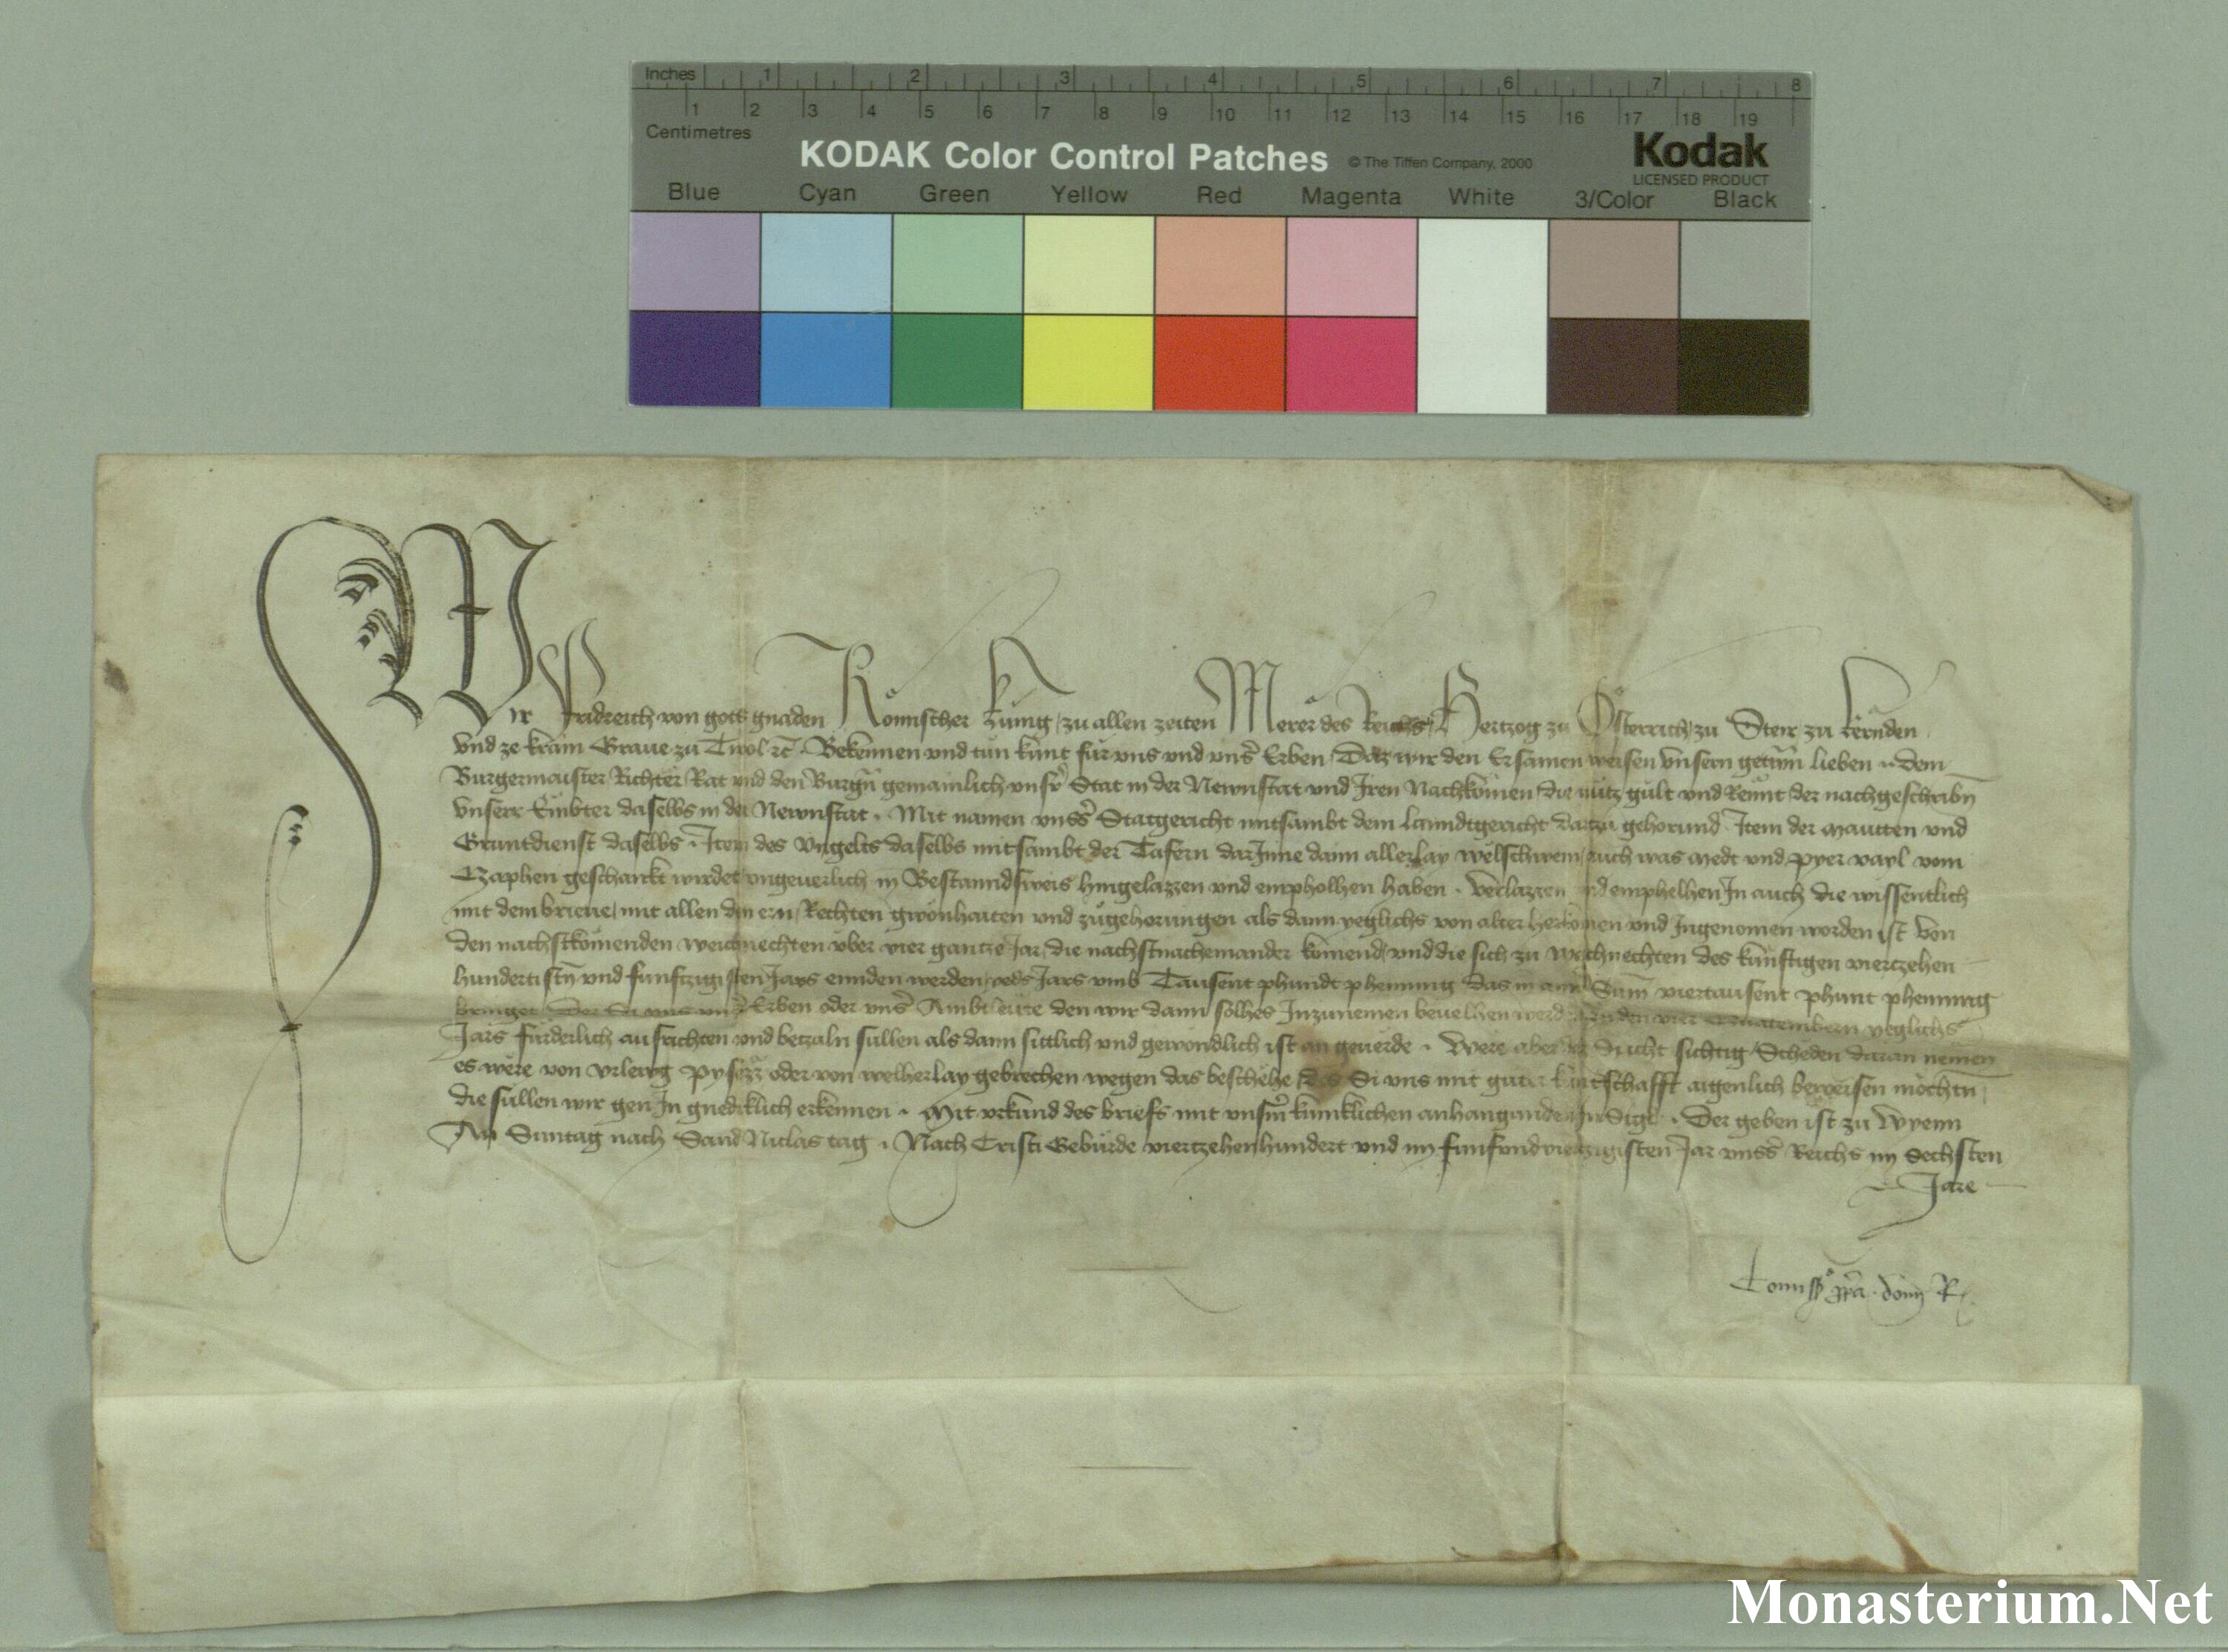 Inches 1 2 3 4 5 6 7 8
1 2 3 4 5 6 7 8 9 10 11 12 13 14 15 16 17 18 19
Centimetres
KODAK Color Control Patches © The Tiffen Company, 2000 Kodak
LICENSED PRODUCT
Blue Cyan Green Yellow Red Magenta White 3/Color Black
Wir Fridreich von gots gnaden Römischer Kunig zu allen zeiten Merer des Reichs Hertzog zu Österreich zu Steir zu Kernden
vnd ze Krain Graue zu Tirol etc. Bekennen vnd tun kunt für vns vnd vnser Erben Daz wir den Ersamen weisen vnsern getrewn lieben dem
Burgermaister Richter Rat vnd den Burgern gemainlich vnsrer Stat in der Newnstat vnd Iren Nachkomen die nutz gult vnd Rennt der nachgeschribn
vnserr Embter daselbs in der Newnstat. Mit namen vnsers Statgericht mitsambt dem Lanndtgericht dartzu gehorund Item der mautten vnd
Gruntdienst daselbs. Item des vngelts daselbs mitsambt der Tafern darInne dann allerlay welschwein auch was medt vnd pyer vayl vom
Zaphen geschankt wirdet vngeuerlich in Bestanndsweis hingelazzen vnd empholhen haben. Verlazzen vnd emphelhen In auch die wissentlich
mit dem brieue mit allen den ern Rechten gwonhaiten vnd zugehorungen als dann yeglichs von alter herkomen vnd Ingenomen worden ist Von
den nachstkomenden weichnechten vber vier gantze Jar die nachstnacheinander komend vnd die sich zu weichnechten des kunftigen viertzehen
hundertistn vnd funftzigisten Jars ennden werden yeds Jars vmb Tausent phundt phenning das in ainer Sum viertausent phunt phenning
bringet Der Si vns vnser Erben oder vnser Ambtleute den wir dann solhes Inzunemen beuelhen werden zu den vier Quatembern yeglichs
Jars furderlich ausrichten vnd betzaln sullen als dann sittlich vnd gewondlich ist an geuerde. Were aber der Sicht sichtig Scheden daran nemen
es were von vrleug pysezz oder von welherlay gebrechen wegen das beschehe des Si vns mit guter kuntschafft aigenlich beweisen mochtn
die sullen wir gen In gnediklich erkennen. Mit vrkund des briefs mit vnserm kuniklichen anhangunden InSigl. Der geben ist zu Wyenn
An Suntag nach Sand Niclas tag. Nach Cristi Geburde viertzehenhundert vnd im funfvndviertzigisten Jar vnsers Reichs im Sechsten
Jare
Commissio propria domini R
Monasterium.Net